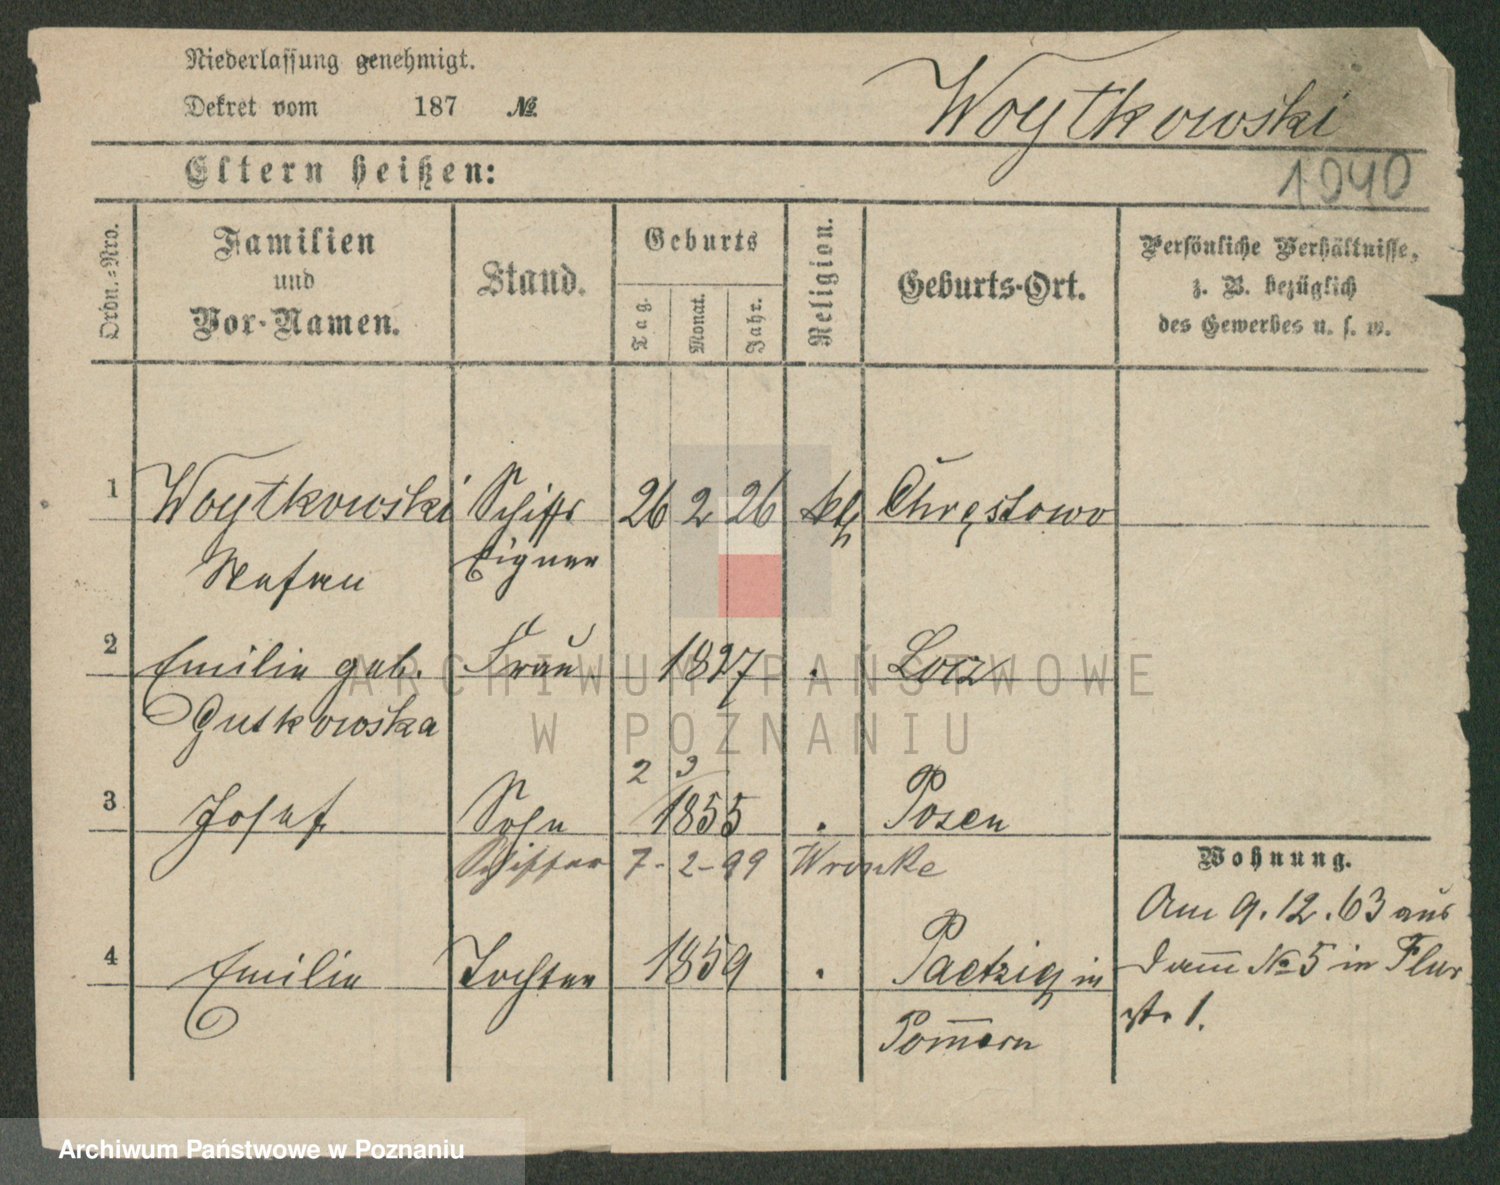 Niederlassung genehmigt.
Dekret vom 187 №
Woytkowski
Eltern heißen:
1940
Ordn.=Nro.
Familien
und
Vor-Namen.
Stand.
Geburts
Tag.
Monat.
Jahr.
Religion.
Geburts-Ort.
Persönliche Verhältnisse,
z. B. bezüglich
des Gewerbes u. s. w.
1 Woytkowski Schiffs 26 2 26 kth Chręstowo
Stefan Eigner
2 Emilie geb. Frau 1827 . Lorz
Gutkowska
2 3
3 Josef Sohn 1855 . Posen
Schiffer 7-2-99 Wronke
Wohnung.
Am 9.12.63 aus
Damm № 5 in Flur
str 1.
4 Emilie Tochter 1859 . Paetzig in
Pommern
ARCHIWUM PAŃSTWOWE
W POZNANIU
Archiwum Państwowe w Poznaniu